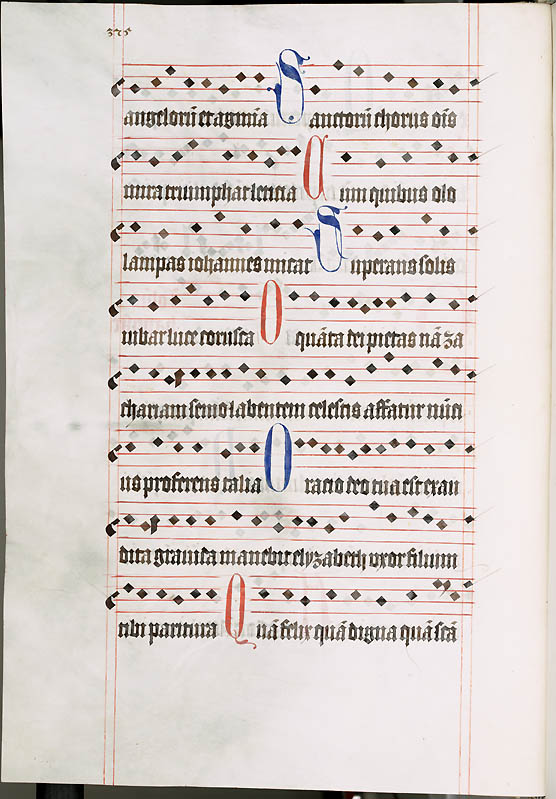 375
angelorū et agmīa Sanctorū chorus oīs
mira triumphat leticia Cum quibus olo
lampas iohannes micat Superans solis
iubar luce corusca O quāta dei pietas nā za
chariam senio labentem celestis affatur nūci
us proferens talia Oracio deo tua est exau
dita grauida manebit elyzabeth vxor filium
tibi paritura Quā felix quā digna quā scā